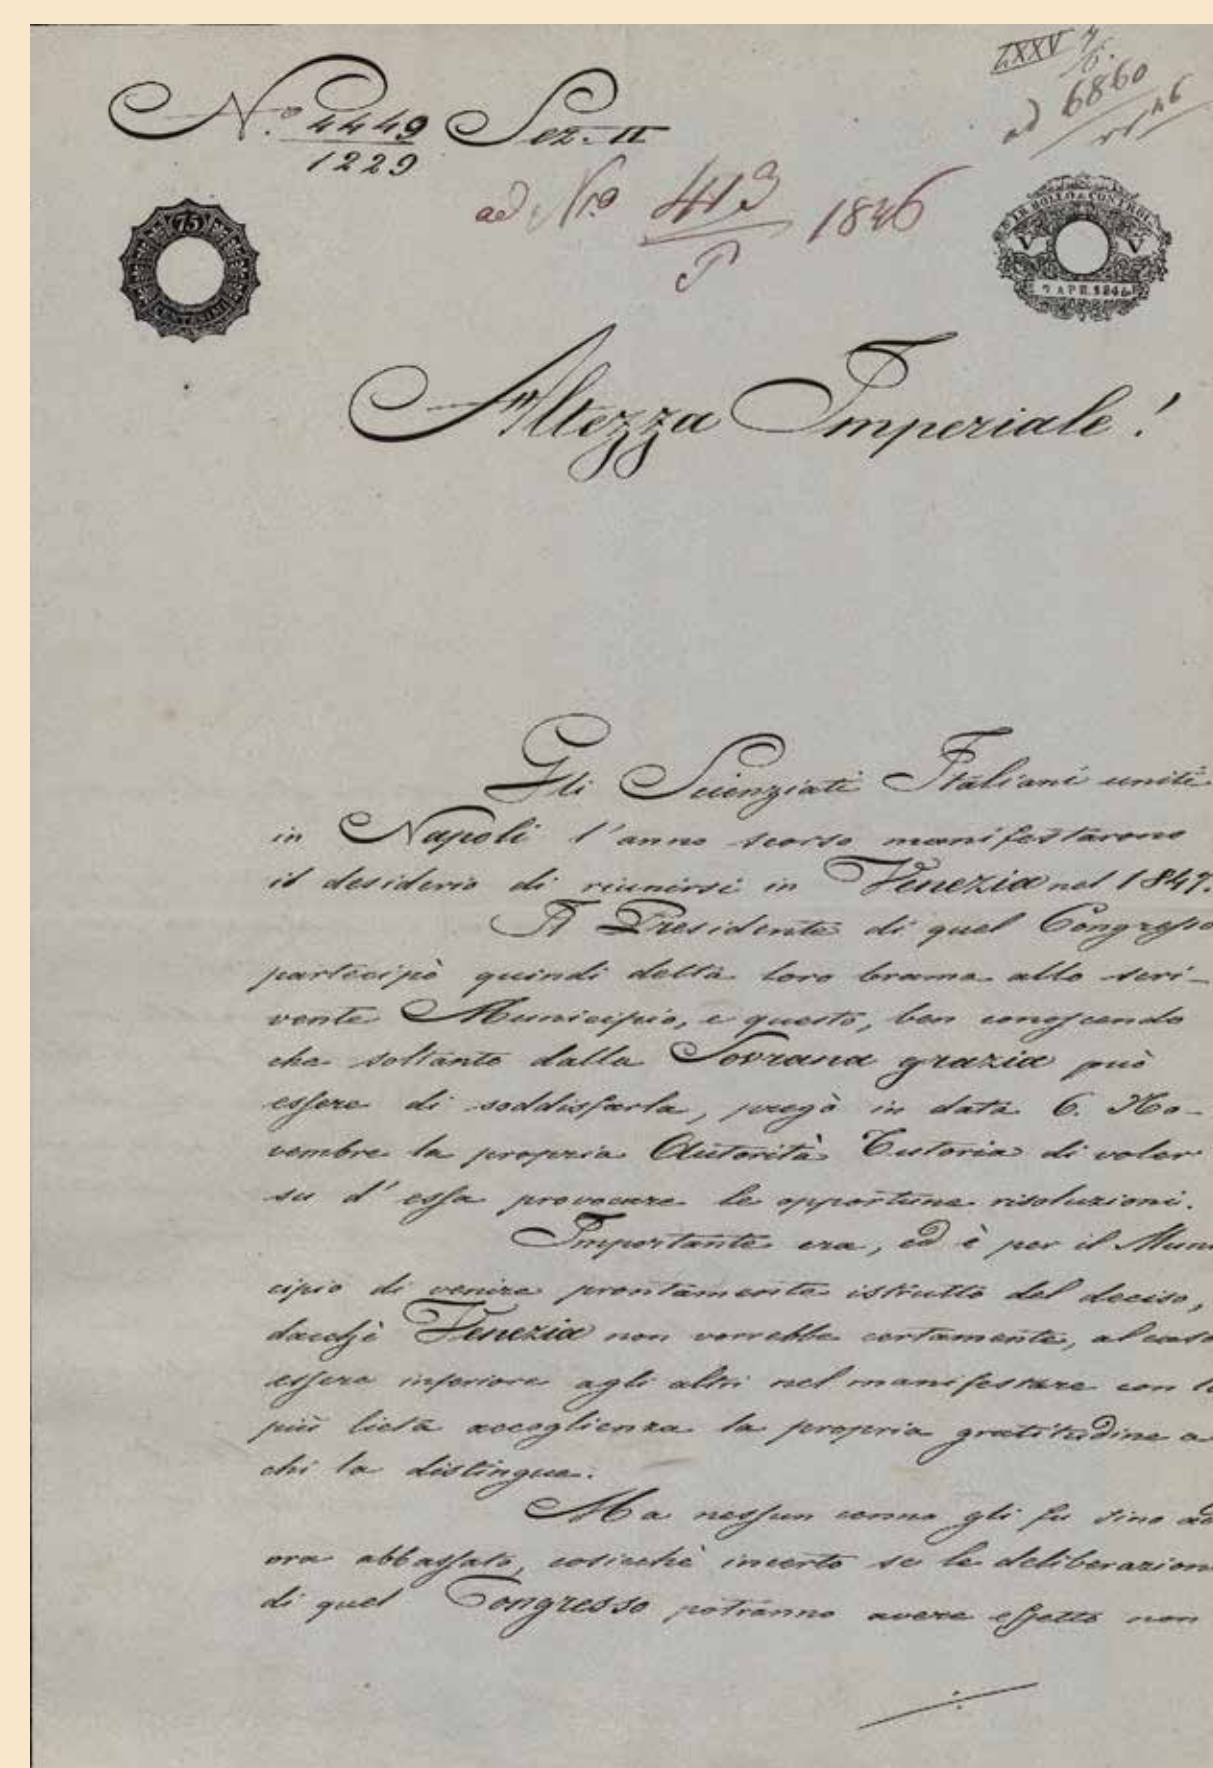 LXXV 4/5.
N.o 4449 Sez. II
1229
ad 6860
46
ad Nro 413 1846
P
75
CENTESIMI
I.R. BOLLO & CONTROL.
V V
7 APR. 1846
Altezza Imperiale!
Gli Scienziati Italiani uniti
in Napoli l'anno scorso manifestarono
il desiderio di riunirsi in Venezia nel 1847.
Il Presidente di quel Congresso
partecipò quindi detta loro brama allo scri-
vente Municipio, e questo, ben conoscendo
che soltanto dalla Sovrana grazia può
essere di soddisfarla, pregò in data 6. No-
vembre la propria Autorità Tutoria di voler
su d'essa provocare le opportune risoluzioni.
Importante era, ed è per il Muni
cipio di venire prontamente istrutto del deciso,
dacchè Venezia non vorrebbe certamente, al caso
essere inferiore agli altri nel manifestare con la
più lieta accoglienza la propria gratitudine a
chi la distingue.
Ma nessun cenno gli fu sino ad
ora abbassato, cosicchè incerto se le deliberazion
di quel Congresso potranno avere effetto non